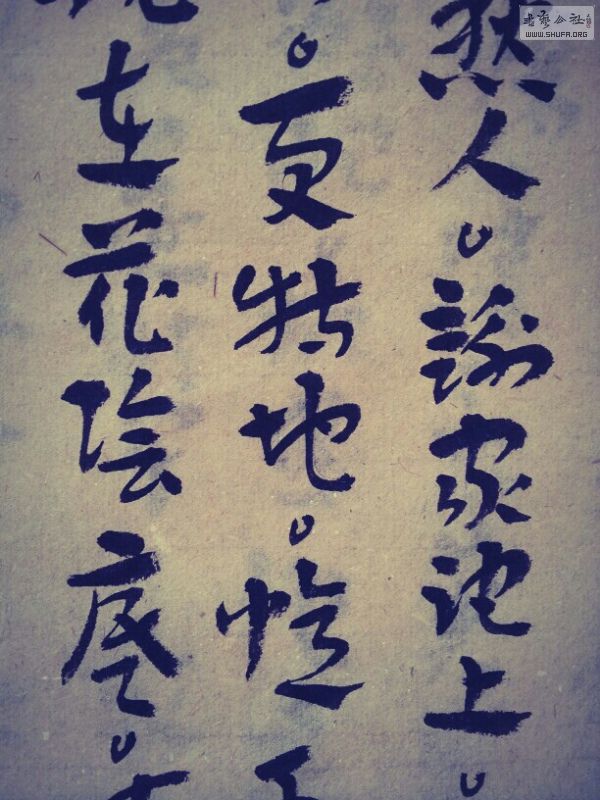 愁人。謝家池上。
。更特地。憶
在花陰底。
書藝公社
WWW.SHUFA.ORG